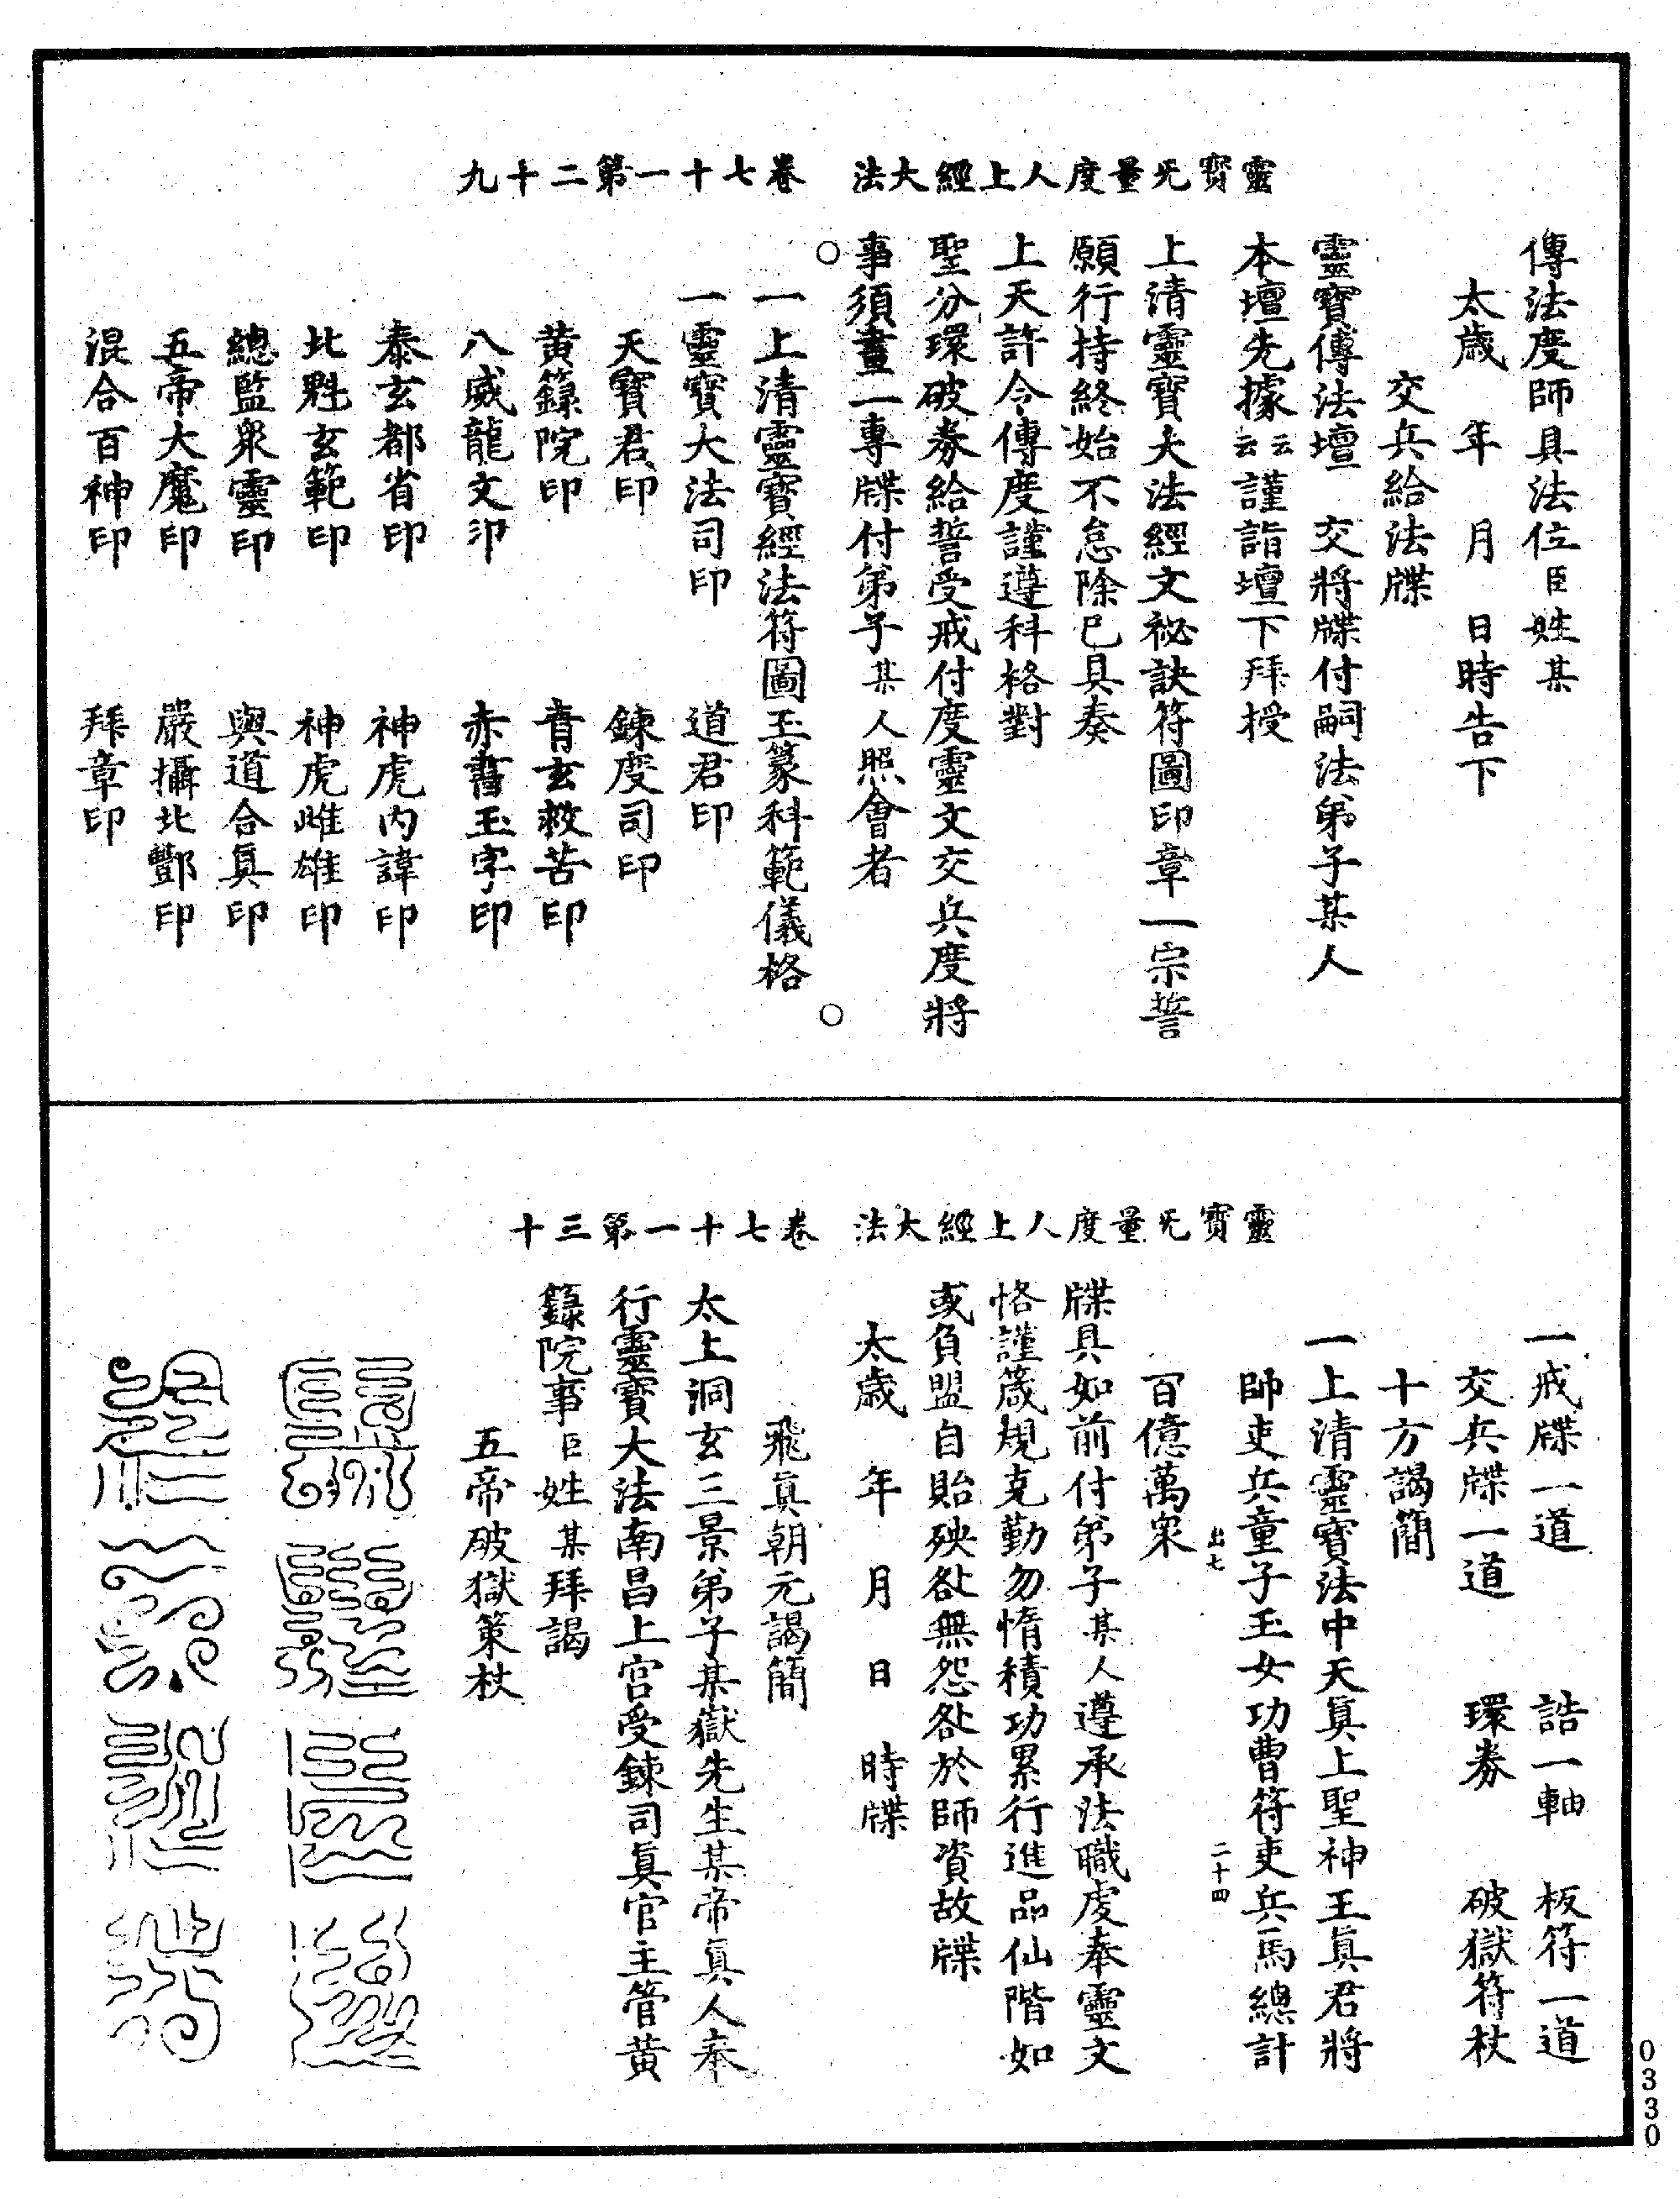 靈寶无量度人上經大法　卷七十一第二十九
傳法度師具法位臣姓某
太歲　年　月　日時告下
交兵給法牒
靈寶傳法壇　交將牒付嗣法弟子某人
本壇先據云云謹詣壇下拜授
上清靈寶大法經文祕訣符圖印章一宗誓
願行持終始不怠除已具奏
上天許令傳度謹遵科格對
聖分環破券給誓受戒付度靈文交兵度將
事須畫一專牒付弟子某人照會者
一上清靈寶經法符圖玉篆科範儀格
一靈寶大法司印　道君印
天寶君印　鍊度司印
黃籙院印　青玄救苦印
八威龍文印　赤書玉字印
泰玄都省印　神虎內諱印
北魁玄範印　神虎雌雄印
總監衆靈印　與道合眞印
五帝大魔印　嚴攝北酆印
混合百神印　拜章印
靈寶无量度人上經大法　卷七十一第三十
一戒牒一道　誥一軸　板符一道
交兵牒一道　環券　破獄符杖
十方謁簡
一上清靈寶法中天眞上聖神王眞君將
帥吏兵童子玉女功曹符吏兵馬總計
出七　二十四
百億萬衆
牒具如前付弟子某人遵承法職虔奉靈文
恪謹箴規克勤勿惰積功累行進品仙階如
或負盟自貽殃咎無怨咎於師資故牒
太歲　年　月　日　時牒
飛眞朝元謁簡
太上洞玄三景弟子某嶽先生某帝眞人奉
行靈寶大法南昌上宮受鍊司眞官主管黃
籙院事臣姓某拜謁
五帝破獄策杖
0330